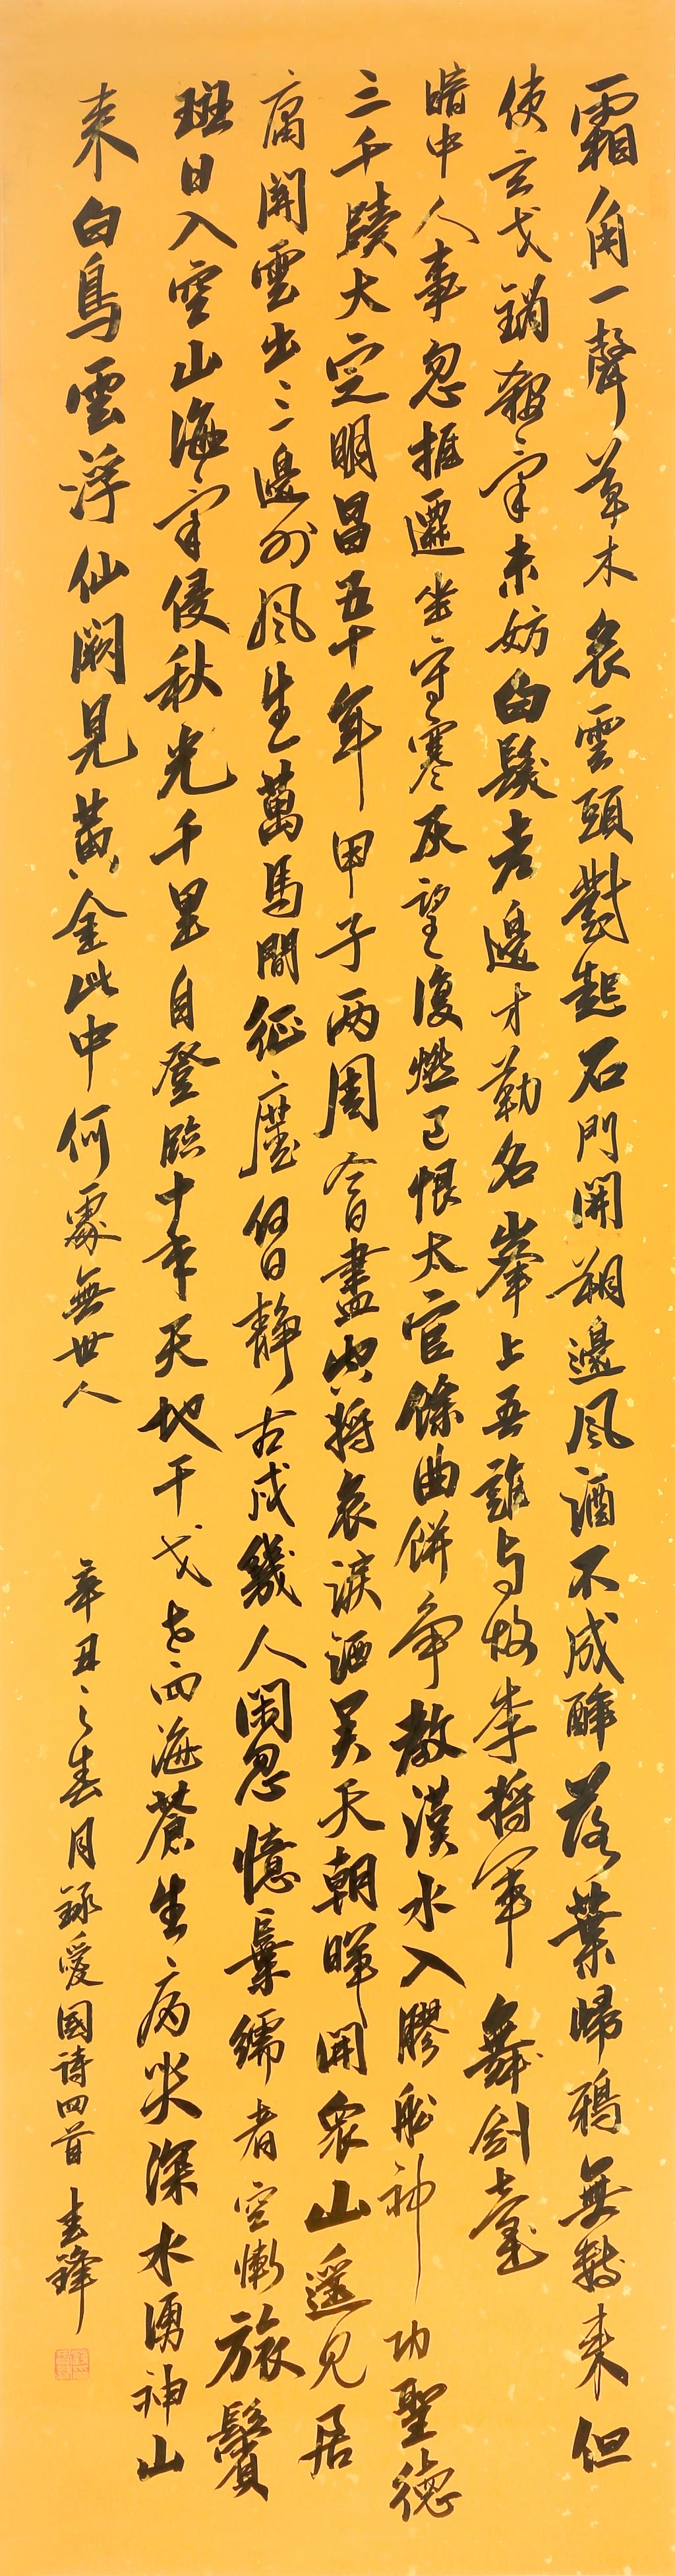 霜角一聲草木哀雲頭對起石門開朔邊風酒不成醉落葉歸鴉無數來但
使玄戈銷殺氣未妨白髮老邊才勒名峯上吾誰与故李將軍舞剑臺
暗中人事忽推遷坐守寒灰望復燃已恨太官餘曲餅争教漢水入膠船神功聖德
三千牘大定明昌五十年甲子两周今日盡空將衰淚洒吴天朝暉開衆山遥見居
庸關雲出三邊外風生萬馬間征塵何日静古戍幾人閑忽憶棄繻者空慚旅鬢
斑日入空山海氣侵秋光千里自登臨十年天地干戈老四海蒼生病哭深水湧神山
来白鳥雲浮仙闕見黄金此中何處無世人
辛丑之春月録愛國詩四首 春鋒